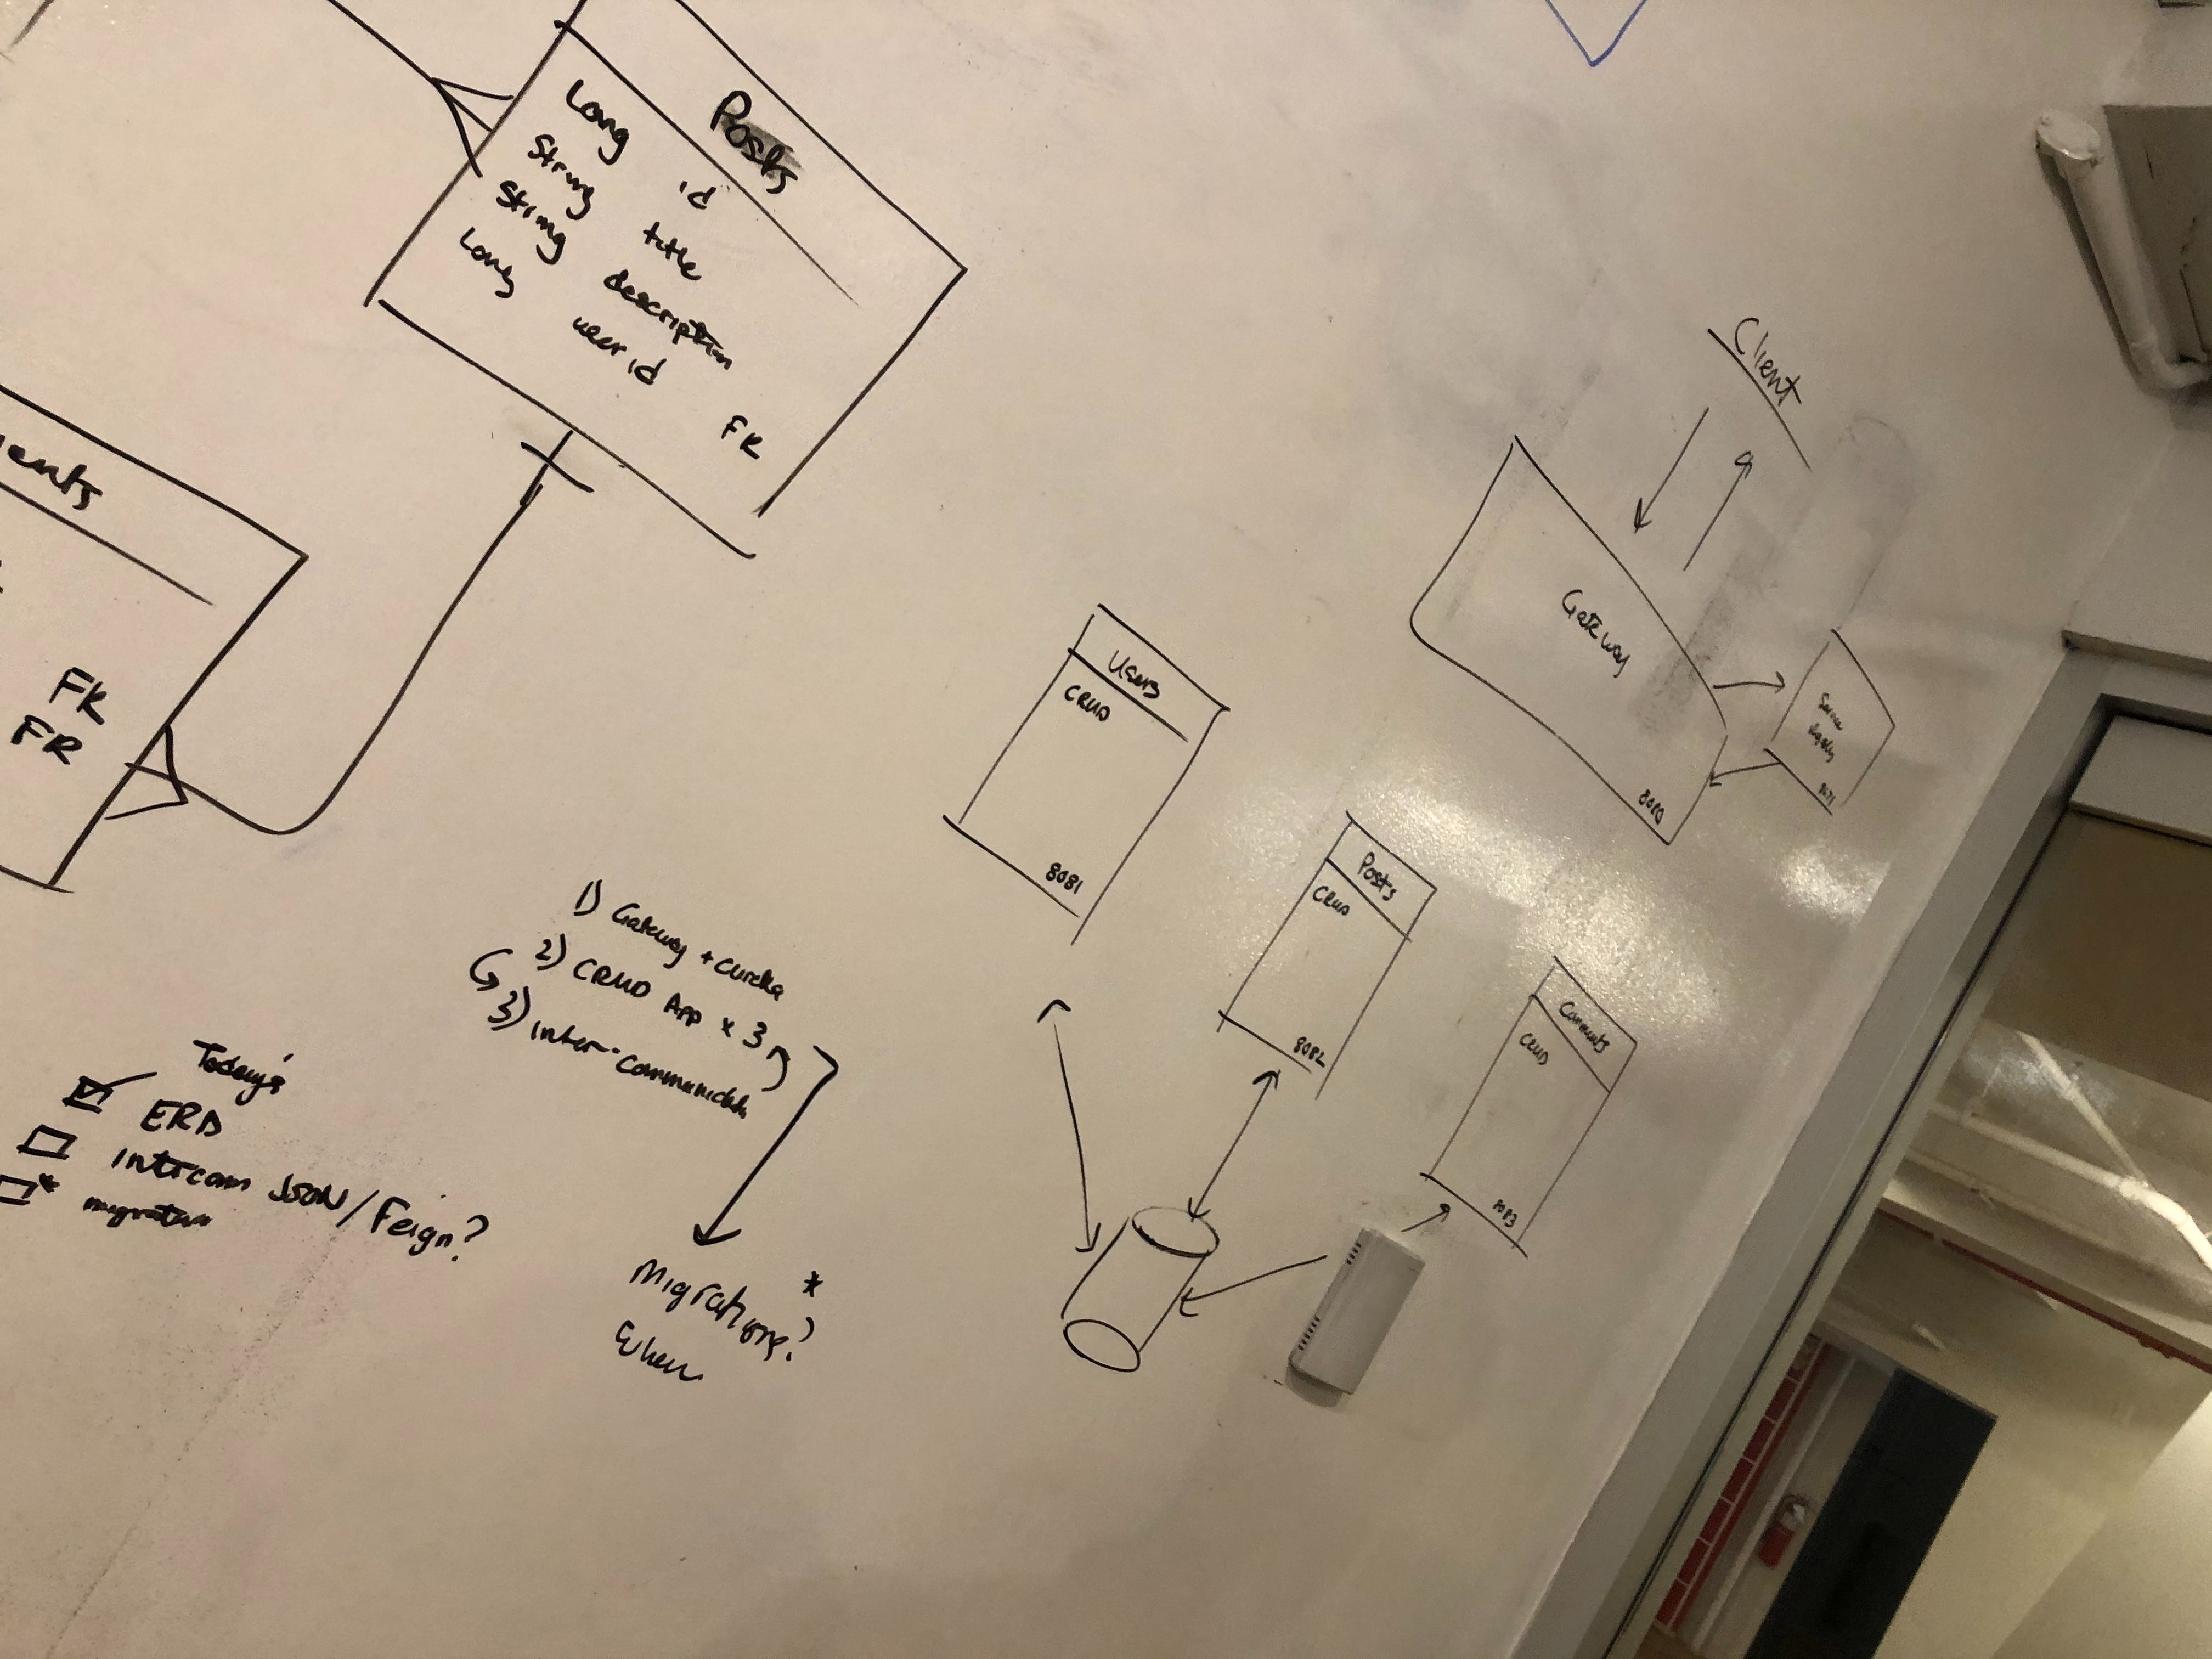 Posts
Long id
String title
String description
Long user id FK
ents
FK
FK
Client
Gateway
8080
Service
Users
CRUD
8081
Posts
CRUD
8082
Comments
CRUD
8083
1) Gateway + eureka
2) CRUD App x 3
3) inter-communication
Migrations? *
When
Today's
ERD
intercom JSON/Feign?
* migration